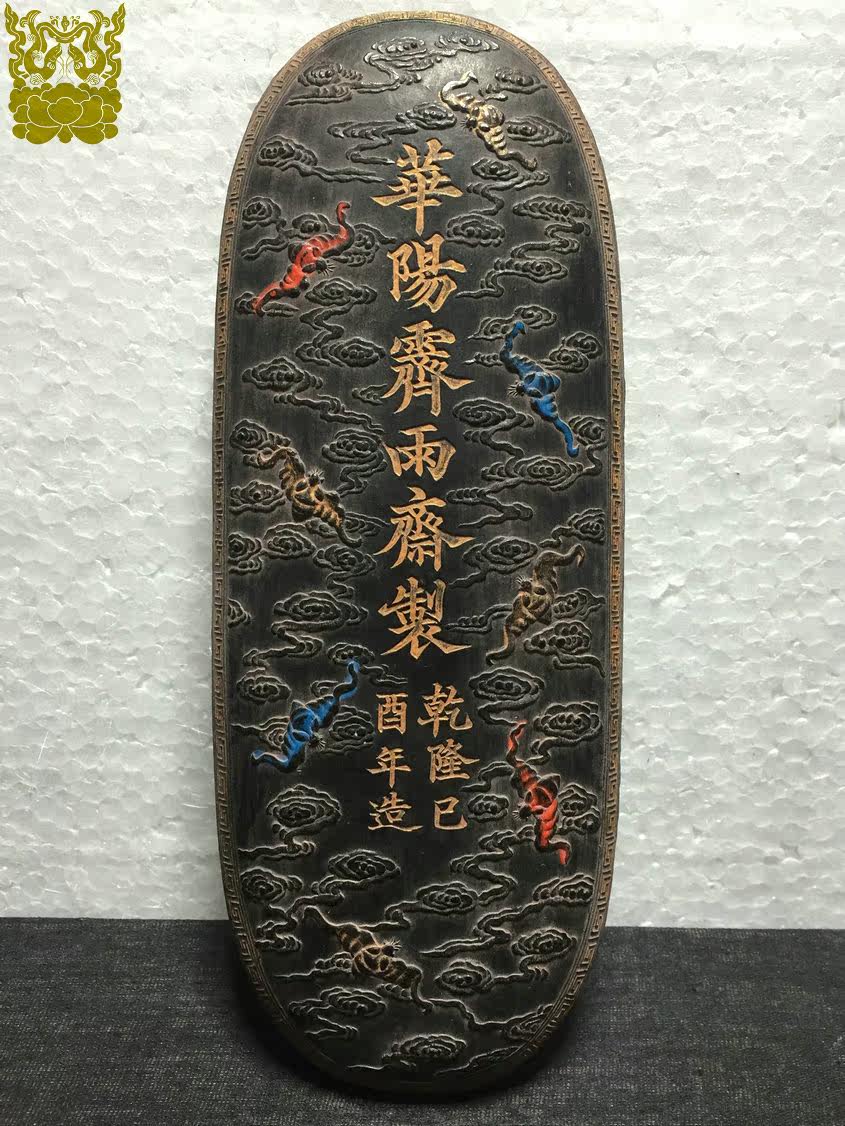 華陽霽雨齋製
乾隆已
酉年造